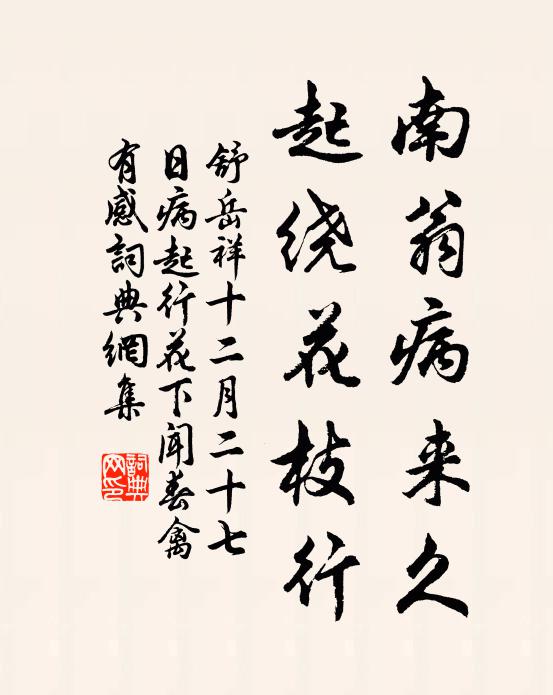 南翁病来久
起绕花枝行
舒岳祥十二月二十七
日病起行花下闻春禽
有感詞典網集
詞典网印